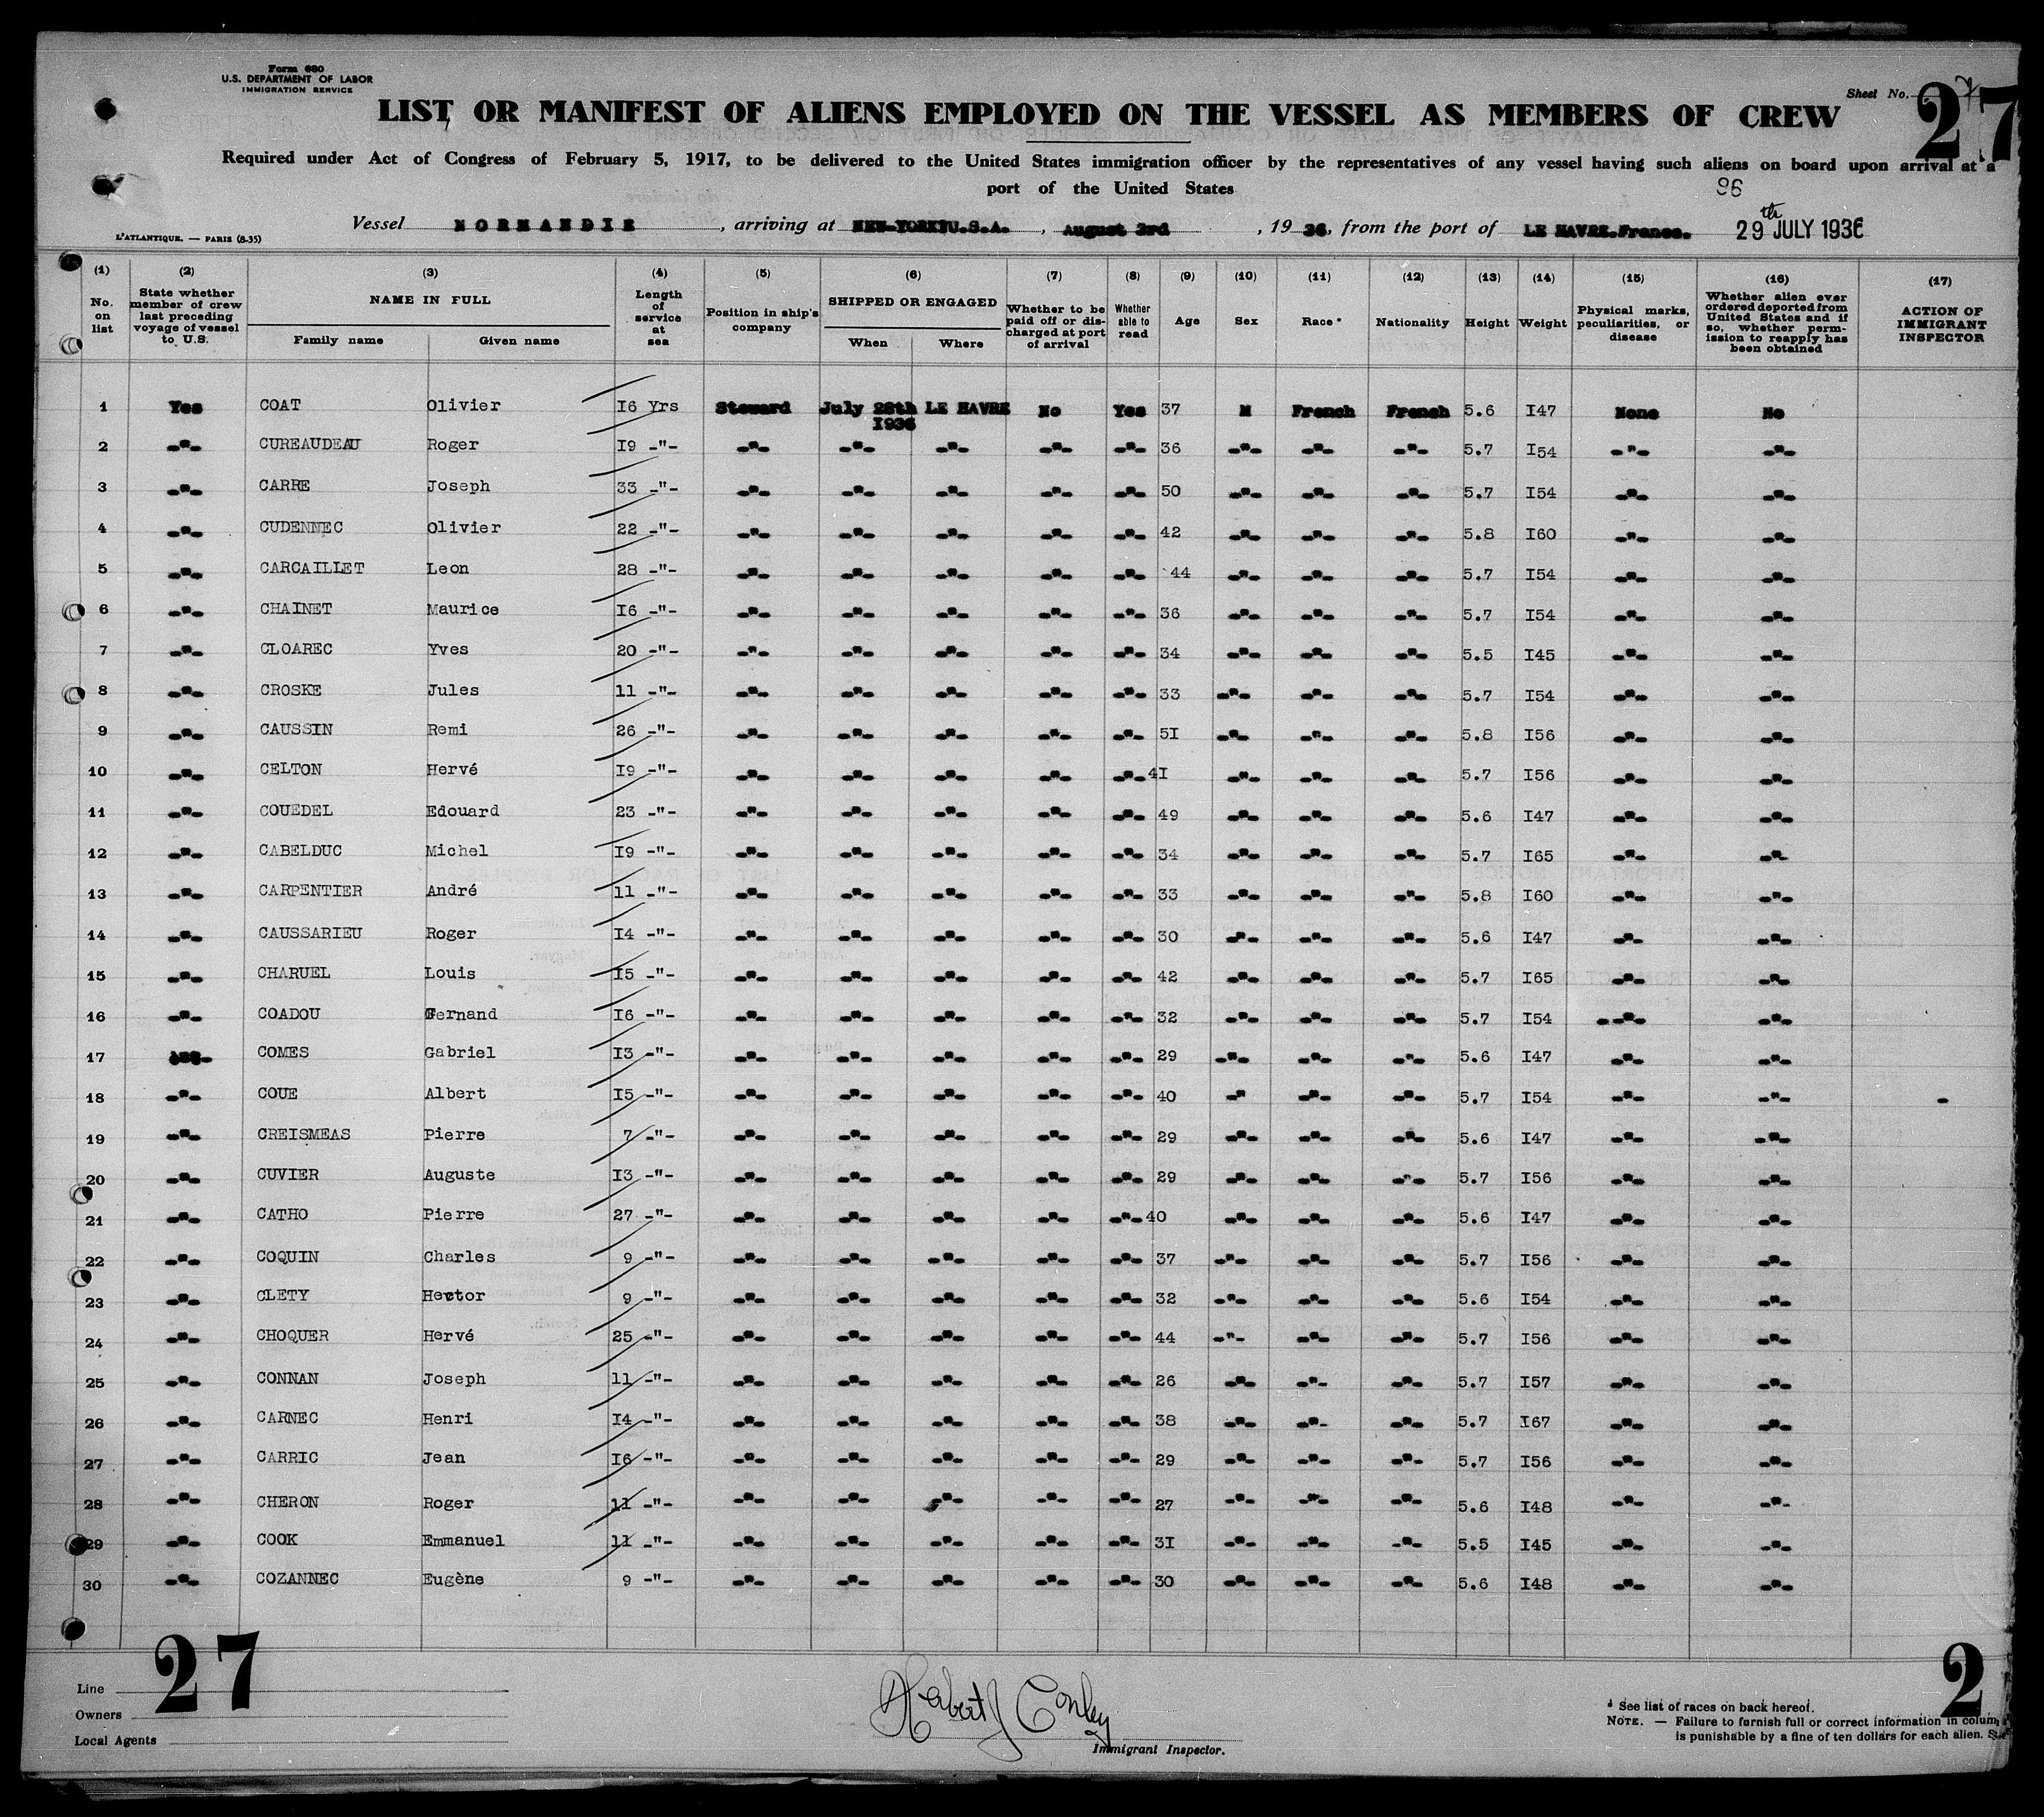 Form 680
U.S. DEPARTMENT OF LABOR
IMMIGRATION SERVICE
Sheet No. 27
LIST OR MANIFEST OF ALIENS EMPLOYED ON THE VESSEL AS MEMBERS OF CREW
Required under Act of Congress of February 5, 1917, to be delivered to the United States immigration officer by the representatives of any vessel having such aliens on board upon arrival at a
port of the United States
96
Vessel NORMANDIE, arriving at NEW-YORK U.S.A., August 3rd, 1936, from the port of LE HAVRE.France. 29th JULY 1936
L'ATLANTIQUE. — PARIS (8-35)
(1) (2) (3) (4) (5) (6) (7) (8) (9) (10) (11) (12) (13) (14) (15) (16) (17)
No. on list | State whether member of crew last preceding voyage of vessel to U.S. | NAME IN FULL Family name Given name | Length of service at sea | Position in ship's company | SHIPPED OR ENGAGED When Where | Whether to be paid off or discharged at port of arrival | Whether able to read | Age | Sex | Race* | Nationality | Height | Weight | Physical marks, peculiarities, or disease | Whether alien ever ordered deported from United States and if so, whether permission to reapply has been obtained | ACTION OF IMMIGRANT INSPECTOR
1 Yes COAT Olivier I6 Yrs Steward July 28th I936 LE HAVRE No Yes 37 M French French 5.6 I47 None No
2 -"- CUREAUDEAU Roger I9 -"- -"- -"- -"- -"- -"- 36 -"- -"- -"- 5.7 I54 -"- -"-
3 -"- CARRE Joseph 33 -"- -"- -"- -"- -"- -"- 50 -"- -"- -"- 5.7 I54 -"- -"-
4 -"- CUDENNEC Olivier 22 -"- -"- -"- -"- -"- -"- 42 -"- -"- -"- 5.8 I60 -"- -"-
5 -"- CARCAILLET Leon 28 -"- -"- -"- -"- -"- -"- 44 -"- -"- -"- 5.7 I54 -"- -"-
6 -"- CHAINET Maurice I6 -"- -"- -"- -"- -"- -"- 36 -"- -"- -"- 5.7 I54 -"- -"-
7 -"- CLOAREC Yves 20 -"- -"- -"- -"- -"- -"- 34 -"- -"- -"- 5.5 I45 -"- -"-
8 -"- CROSKE Jules 11 -"- -"- -"- -"- -"- -"- 33 -"- -"- -"- 5.7 I54 -"- -"-
9 -"- CAUSSIN Remi 26 -"- -"- -"- -"- -"- -"- 5I -"- -"- -"- 5.8 I56 -"- -"-
10 -"- CELTON Hervé I9 -"- -"- -"- -"- -"- -"- 4I -"- -"- -"- 5.7 I56 -"- -"-
11 -"- COUEDEL Edouard 23 -"- -"- -"- -"- -"- -"- 49 -"- -"- -"- 5.6 I47 -"- -"-
12 -"- CABELDUC Michel I9 -"- -"- -"- -"- -"- -"- 34 -"- -"- -"- 5.7 I65 -"- -"-
13 -"- CARPENTIER André 11 -"- -"- -"- -"- -"- -"- 33 -"- -"- -"- 5.8 I60 -"- -"-
14 -"- CAUSSARIEU Roger I4 -"- -"- -"- -"- -"- -"- 30 -"- -"- -"- 5.6 I47 -"- -"-
15 -"- CHARUEL Louis I5 -"- -"- -"- -"- -"- -"- 42 -"- -"- -"- 5.7 I65 -"- -"-
16 -"- COADOU Fernand I6 -"- -"- -"- -"- -"- -"- 32 -"- -"- -"- 5.7 I54 -"- -"-
17 COMES Gabriel I3 -"- -"- -"- -"- -"- -"- 29 -"- -"- -"- 5.6 I47 -"- -"-
18 -"- COUE Albert I5 -"- -"- -"- -"- -"- -"- 40 -"- -"- -"- 5.7 I54 -"- -"-
19 -"- CREISMEAS Pierre 7 -"- -"- -"- -"- -"- -"- 29 -"- -"- -"- 5.6 I47 -"- -"-
20 -"- CUVIER Auguste I3 -"- -"- -"- -"- -"- -"- 29 -"- -"- -"- 5.7 I56 -"- -"-
21 -"- CATHO Pierre 27 -"- -"- -"- -"- -"- -"- 40 -"- -"- -"- 5.6 I47 -"- -"-
22 -"- COQUIN Charles 9 -"- -"- -"- -"- -"- -"- 37 -"- -"- -"- 5.7 I56 -"- -"-
23 -"- CLETY Hector 9 -"- -"- -"- -"- -"- -"- 32 -"- -"- -"- 5.6 I54 -"- -"-
24 -"- CHOQUER Hervé 25 -"- -"- -"- -"- -"- -"- 44 -"- -"- -"- 5.7 I56 -"- -"-
25 -"- CONNAN Joseph 11 -"- -"- -"- -"- -"- -"- 26 -"- -"- -"- 5.7 I57 -"- -"-
26 -"- CARNEC Henri I4 -"- -"- -"- -"- -"- -"- 38 -"- -"- -"- 5.7 I67 -"- -"-
27 -"- CARRIC Jean I6 -"- -"- -"- -"- -"- -"- 29 -"- -"- -"- 5.7 I56 -"- -"-
28 -"- CHERON Roger 11 -"- -"- -"- -"- -"- -"- 27 -"- -"- -"- 5.6 I48 -"- -"-
29 -"- COOK Emmanuel 11 -"- -"- -"- -"- -"- -"- 3I -"- -"- -"- 5.5 I45 -"- -"-
30 -"- COZANNEC Eugène 9 -"- -"- -"- -"- -"- -"- 30 -"- -"- -"- 5.6 I48 -"- -"-
27
2
Line
Owners
Local Agents
Herbert J Conley
Immigrant Inspector.
* See list of races on back hereof.
NOTE. — Failure to furnish full or correct information in colum
is punishable by a fine of ten dollars for each alien.